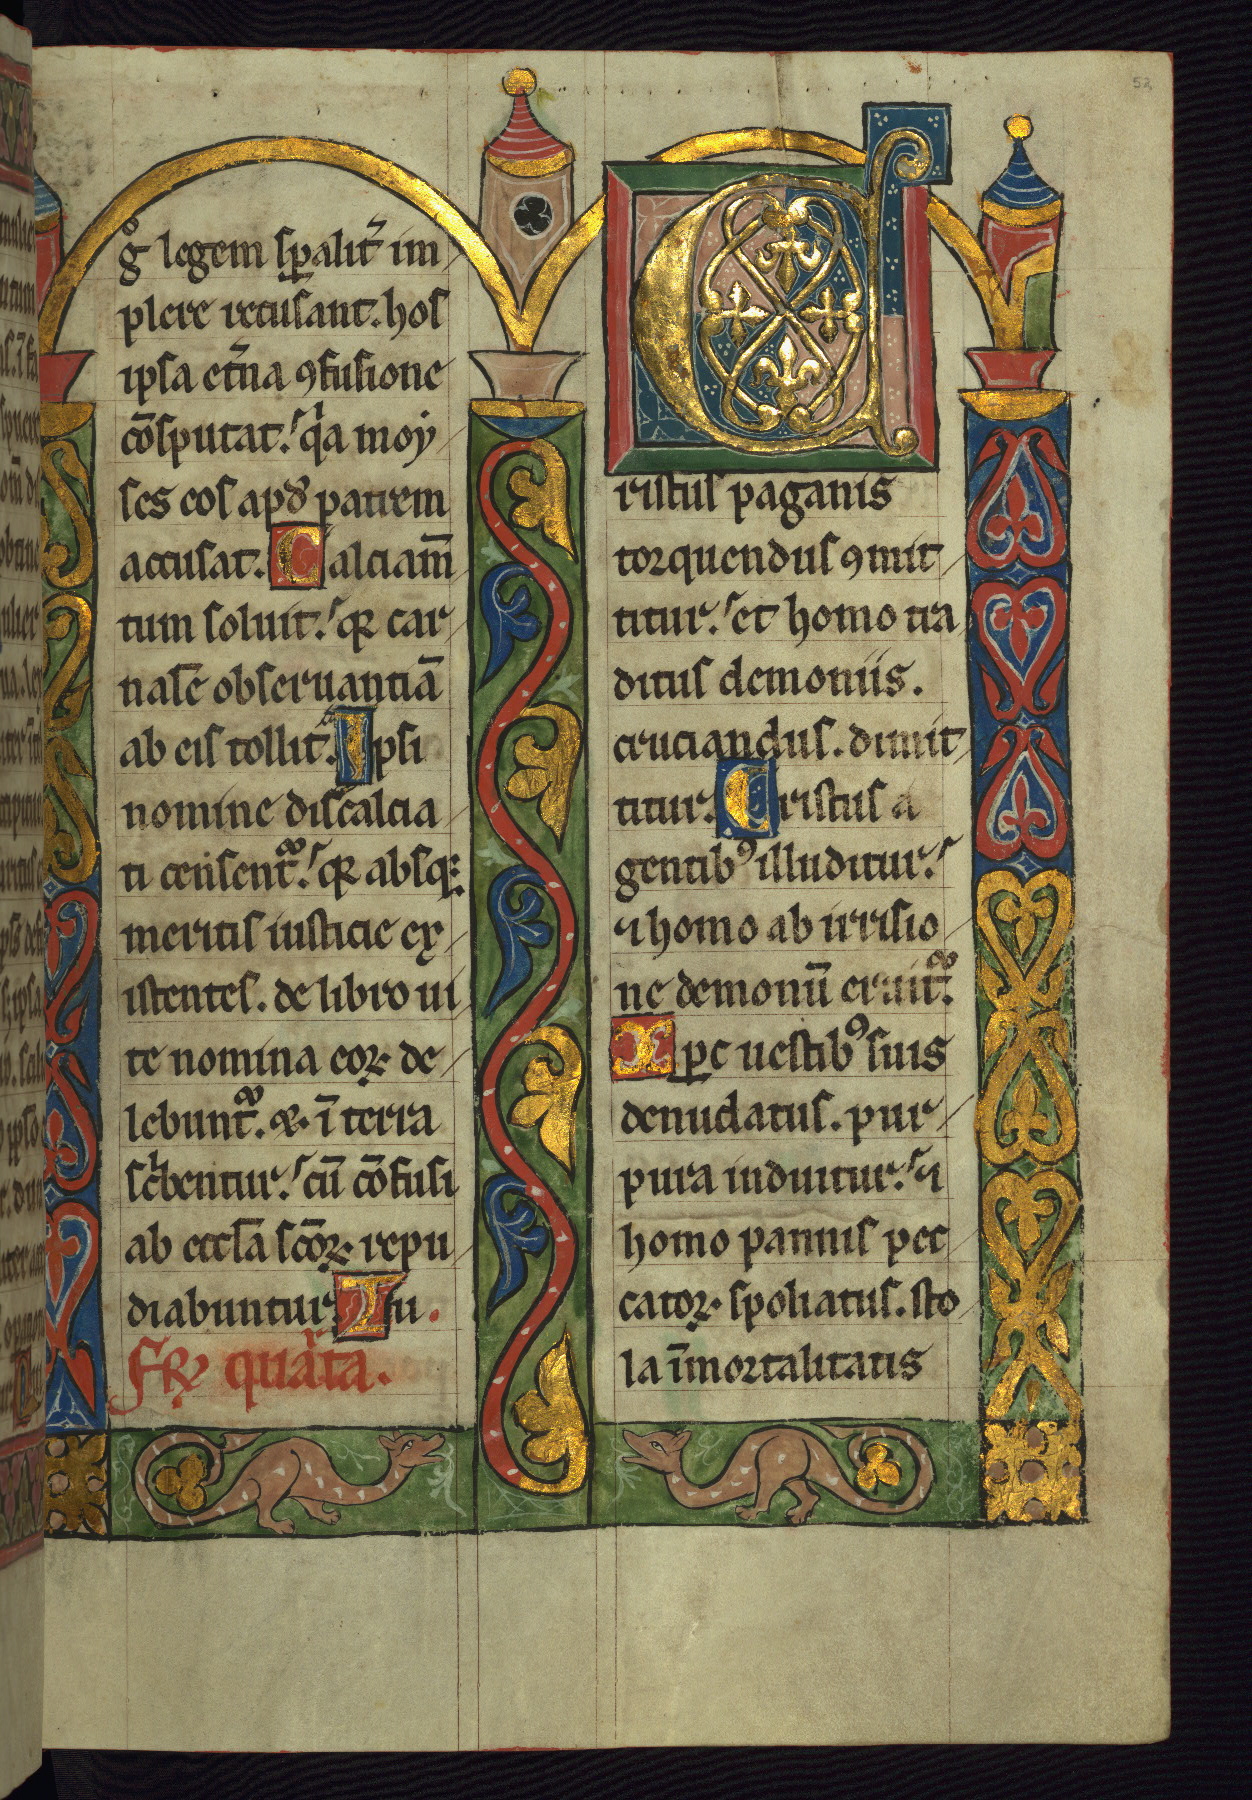 52
gͦ legem sp̄alit᷑ im
plere recusant. hos
ipsa et᷑na ꝯfusione
cōsputat. qͥa moy
ses eos apđ patrem
accusat. Calciam̄
tum soluit. qꝛ car
nalē obseruantiā
ab eis tollit᷑. Ipsi
nomine discalcia
ti censent᷑. qꝛ absqꝫ
meritis iusticie ex
istentes. de libro ui
te nomina eoꝝ de
lebunt᷑. ⁊ ī terra
scͥbentur. cū cōfusi
ab eccl̄a scōꝝ repu
diabuntur. Tu.
quarta.
C
ristus paganis
torquendus ꝯmit
titur. et homo tra
ditus demoniis.
cruciandus. dimit
titur. Cristus a
gentibꝰ illuditur.
⁊ homo ab irrisio
ne demonū eruit᷑.
Xpc uestibꝰ suis
denudatus. pur
pura induitur. ⁊
homo pannis pec
catoꝝ spoliatus. sto
la īmortalitatis